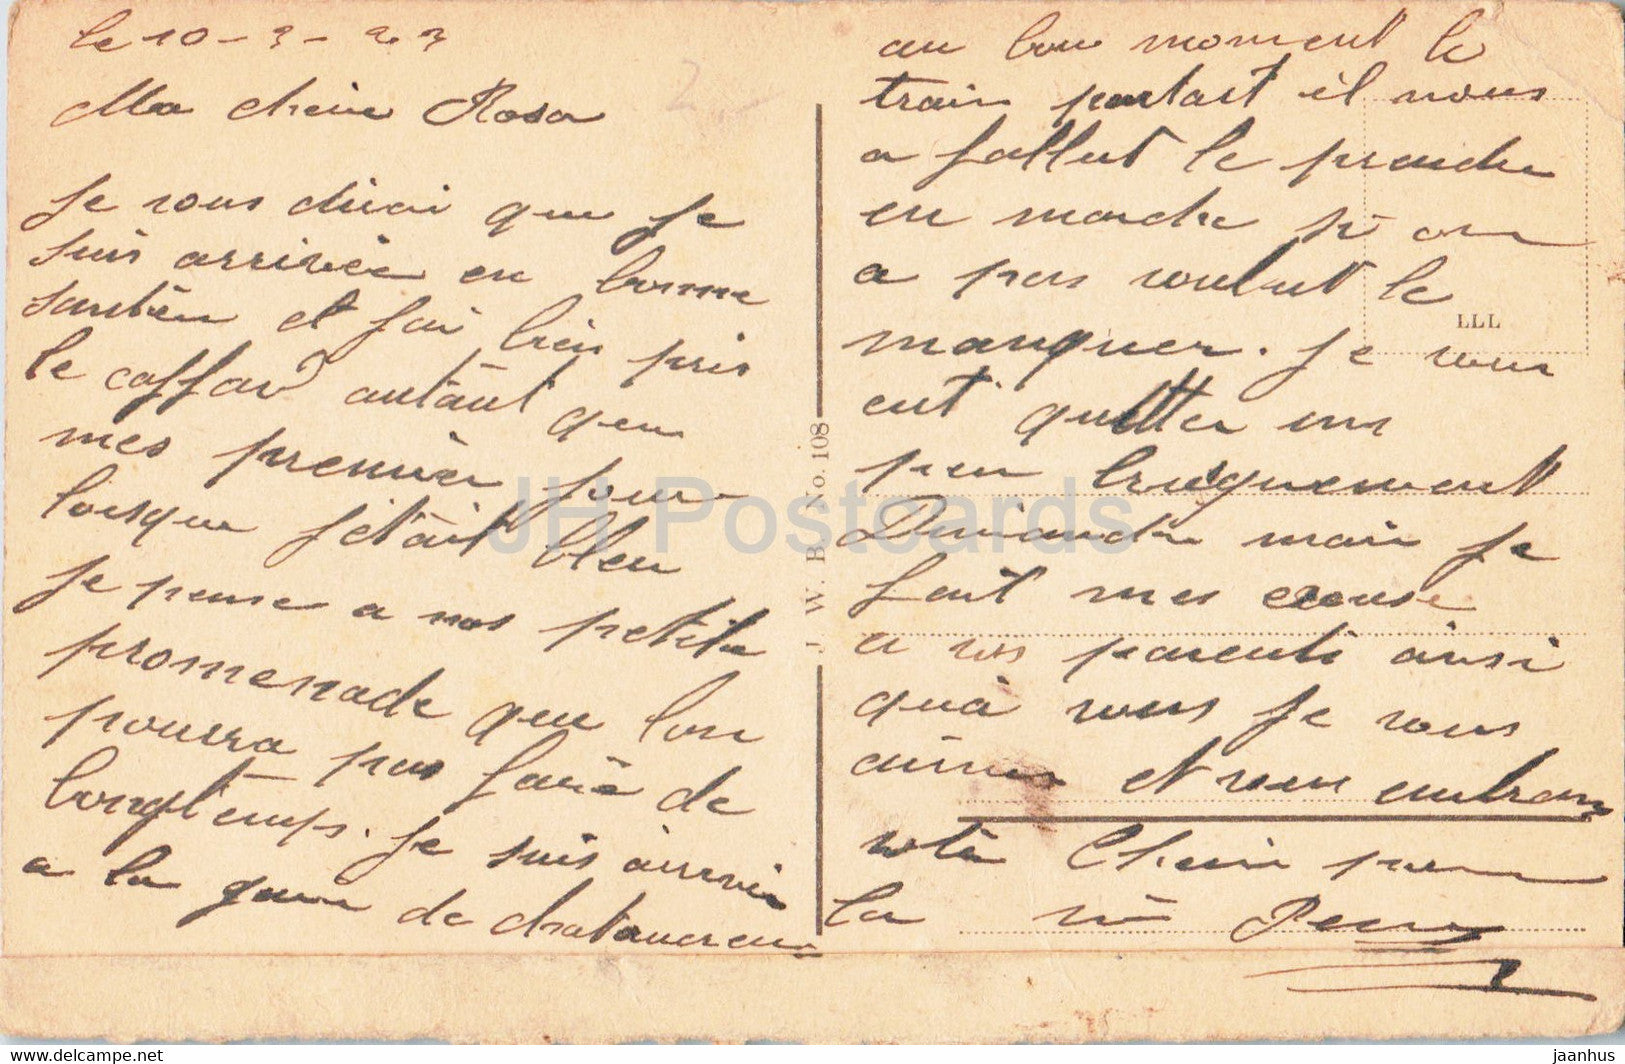 le 10-3-23
Ma cheire Rosa
Je vous dirai que je
suis arrivée en bonne
santée et jai bien pris
le caffard autant que
mes premier jour
lorsque j'était bleu
je pense a nos petite
promenade que lon
pourra pas faire de
longtemps. Je suis arrivée
a la gare de
au bon moment le
train partait il nous
a fallut le prendre
en marche on
a pas voulut le
manquer. Je vous
ent quitter un
peu brusquement
Dimanche mais je
fait mes excuse
a vos parents ainsi
quà vous Je vous
aime et vous embrasse
votre Cheri pour
la vie
LLL
J. W. B. No. 108
JH Postcards
www.delcampe.net
jaanhus